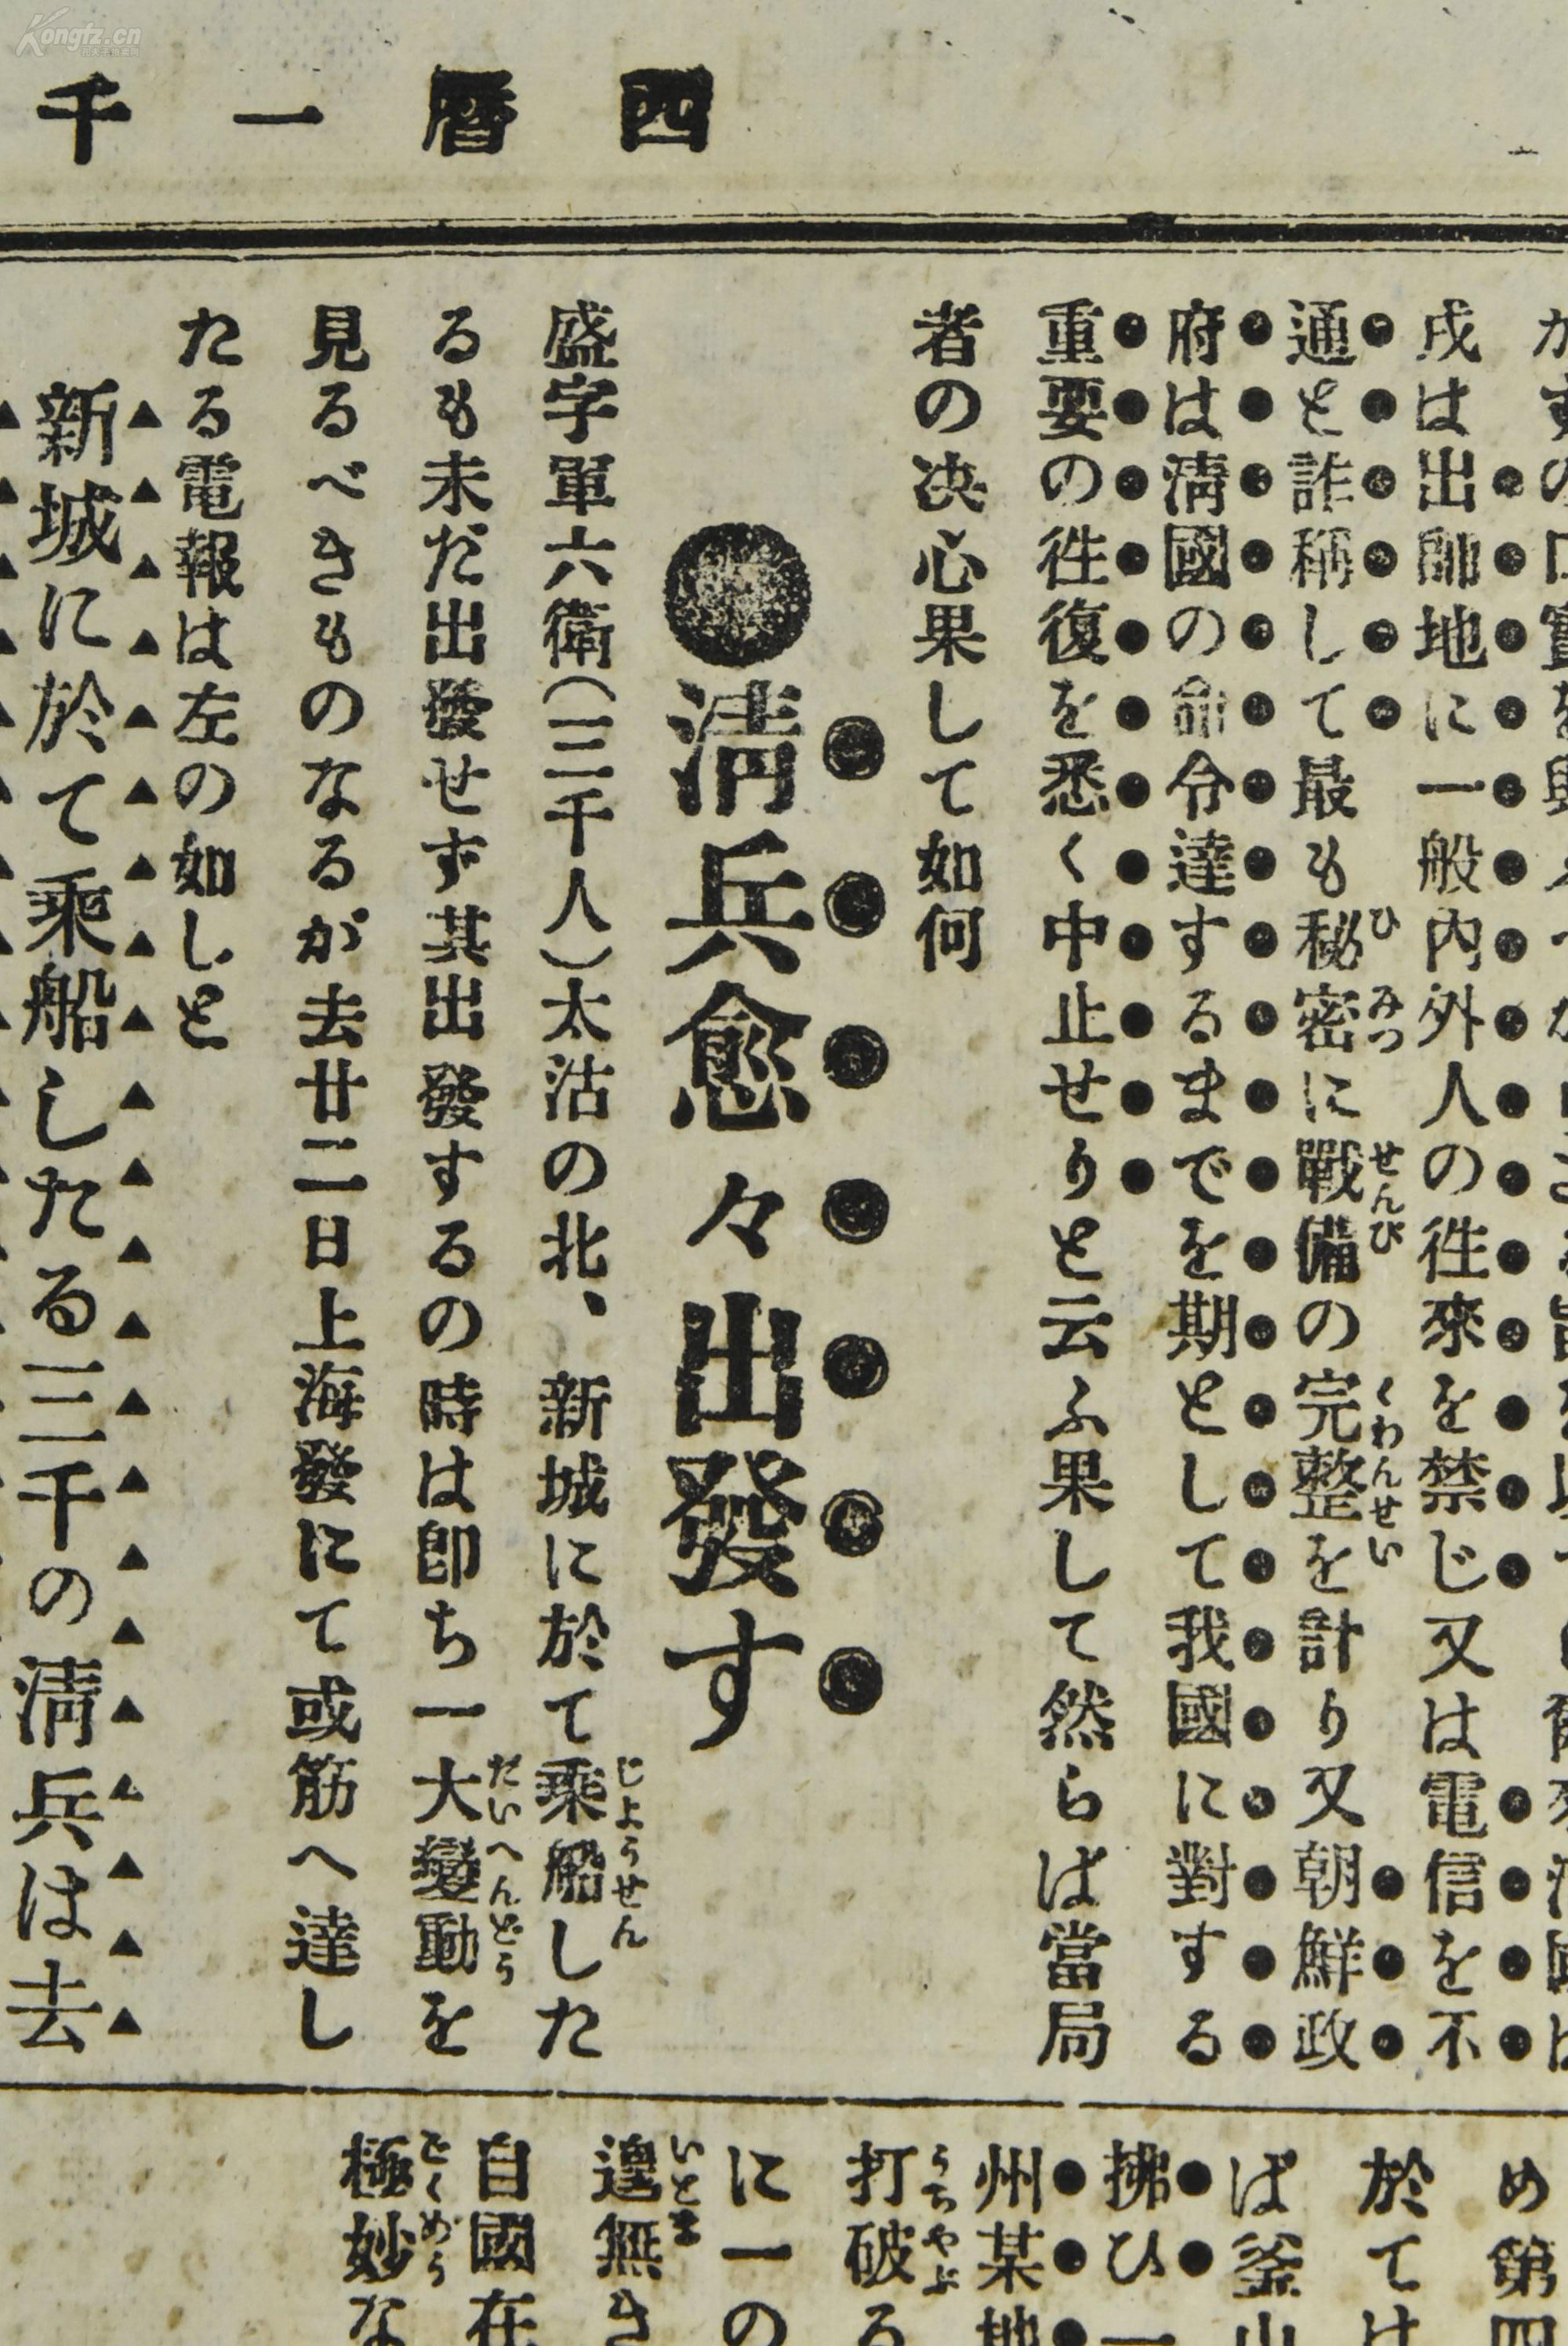 Kongfz.cn
四曆一千
戌は出師地に一般内外人の徃來を禁じ又は電信を不
通と詐稱して最も秘密に戰備の完整を計り又朝鮮政
ひみつ
せんび
くわんせい
府は淸國の命令達するまでを期として我國に對する
重要の徃復を悉く中止せりと云ふ果して然らば當局
者の决心果して如何
●淸兵愈々出發す
盛字軍六衛(三千人)太沽の北、新城に於て乘船した
じようせん
るも未だ出發せず其出發するの時は卽ち一大變動を
だいへんどう
見るべきものなるが去廿二日上海發にて或筋へ達し
たる電報は左の如しと
新城に於て乘船したる三千の淸兵は去
め第四
於ては
ば釜山
拂ひ一
州某地
打破る
うちやぶ
に一の
遑無き
いとま
自國在
極妙な
ごくめう